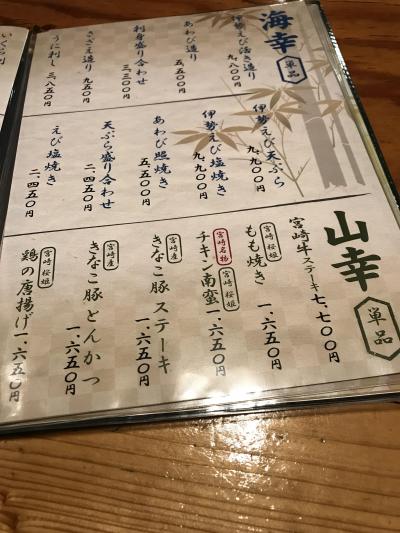 海幸 単品
伊勢えび活き造り 九、八〇〇円
あわび造り 五、五〇〇円
刺身盛り合わせ 三、三〇〇円
さざえ造り 九五〇円
うに刺し 三、八五〇円
伊勢えび天ぷら 九、九〇〇円
伊勢えび塩焼き 九、九〇〇円
あわび照焼き 五、五〇〇円
天ぷら盛り合わせ 二、四五〇円
えび塩焼き 二、四五〇円
山幸 単品
宮崎牛ステーキ 七、七〇〇円
宮崎 桜姫
もも焼き 一、六五〇円
宮崎名物 宮崎 桜姫
チキン南蛮 一、六五〇円
宮崎産
きなこ豚ステーキ 一、六五〇円
宮崎産
きなこ豚とんかつ 一、六五〇円
宮崎 桜姫
鶏の唐揚げ 一、六五〇円